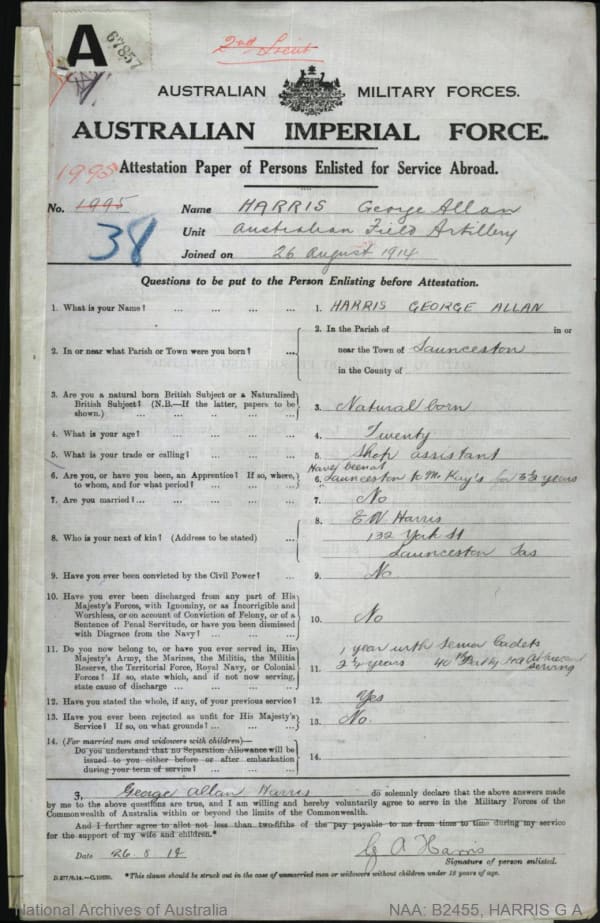 A
67857
2nd Lieut
AUSTRALIAN MILITARY FORCES.
AUSTRALIAN IMPERIAL FORCE.
1995 Attestation Paper of Persons Enlisted for Service Abroad.
No. 1995 Name HARRIS George Allan
38 Unit Australian Field Artillery
Joined on 26 August 1914
Questions to be put to the Person Enlisting before Attestation.
1. What is your Name? ... ... ... ... 1. HARRIS GEORGE ALLAN
2. In or near what Parish or Town were you born? ... 2. In the Parish of in or
near the Town of Launceston
in the County of
3. Are you a natural born British Subject or a Naturalized
British Subject? (N.B.—If the latter, papers to be
shown.) ... ... ... ... 3. Natural born
4. What is your age? ... ... ... ... 4. Twenty
5. What is your trade or calling? ... ... ... 5. Shop assistant
6. Are you, or have you been, an Apprentice? If so, where,
to whom, and for what period? ... ... ... 6. Launceston to Mc Kay's for 3½ years
7. Are you married? ... ... ... ... 7. No
8. Who is your next of kin? (Address to be stated) ... 8. E W Harris
132 York St
Launceston Tas
9. Have you ever been convicted by the Civil Power? ... 9. No
10. Have you ever been discharged from any part of His
Majesty's Forces, with Ignominy, or as Incorrigible and
Worthless, or on account of Conviction of Felony, or of a
Sentence of Penal Servitude, or have you been dismissed
with Disgrace from the Navy? ... ... ... 10. No
11. Do you now belong to, or have you ever served in, His
Majesty's Army, the Marines, the Militia, the Militia
Reserve, the Territorial Force, Royal Navy, or Colonial
Forces? If so, state which, and if not now serving,
state cause of discharge ... ... ... 11. 1 year with Senior Cadets
years serving
12. Have you stated the whole, if any, of your previous service? 12. Yes
13. Have you ever been rejected as unfit for His Majesty's
Service? If so, on what grounds? ... ... 13. No.
14. (For married men and widowers with children)—
Do you understand that no Separation Allowance will be
issued to you either before or after embarkation
during your term of service? ... ... 14.
3, George Allan Harris do solemnly declare that the above answers made
by me to the above questions are true, and I am willing and hereby voluntarily agree to serve in the Military Forces of the
Commonwealth of Australia within or beyond the limits of the Commonwealth.
And I further agree to allot not less than two-fifths of the pay payable to me from time to time during my service
for the support of my wife and children.*
Date 26.8.14 G A Harris
Signature of person enlisted.
*This clause should be struck out in the case of unmarried men or widowers without children under 18 years of age.
National Archives of Australia NAA: B2455, HARRIS G A